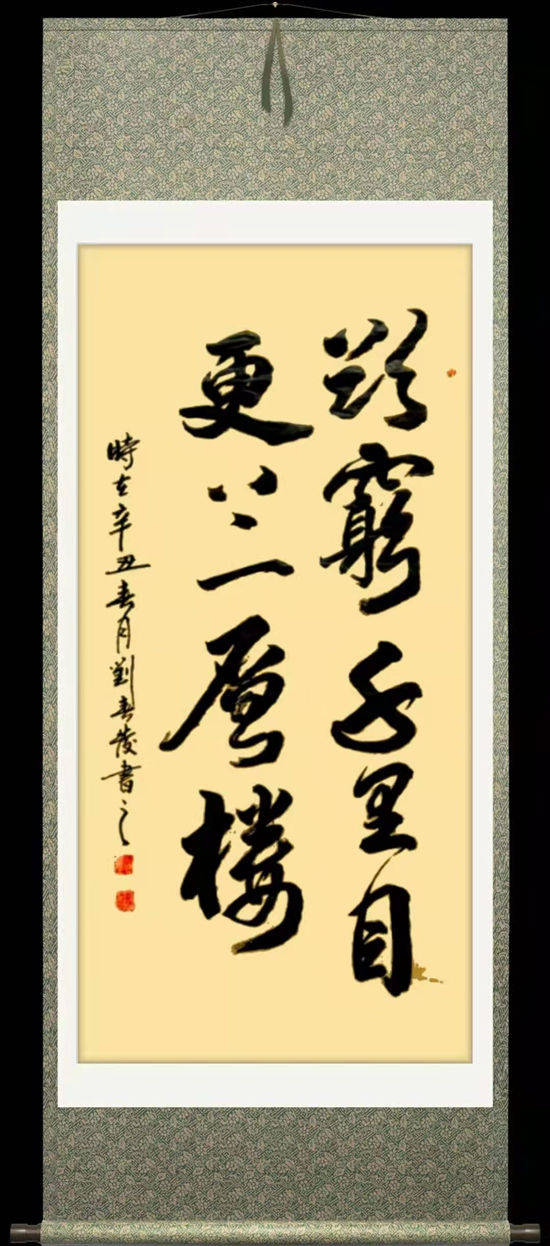 欲窮千里目
更上一層樓
時在辛丑春月劉春書之